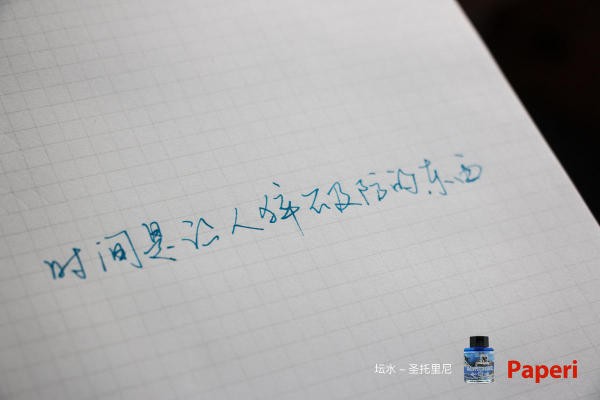 时间是让人猝不及防的东西
坛水 – 圣托里尼
Paperi